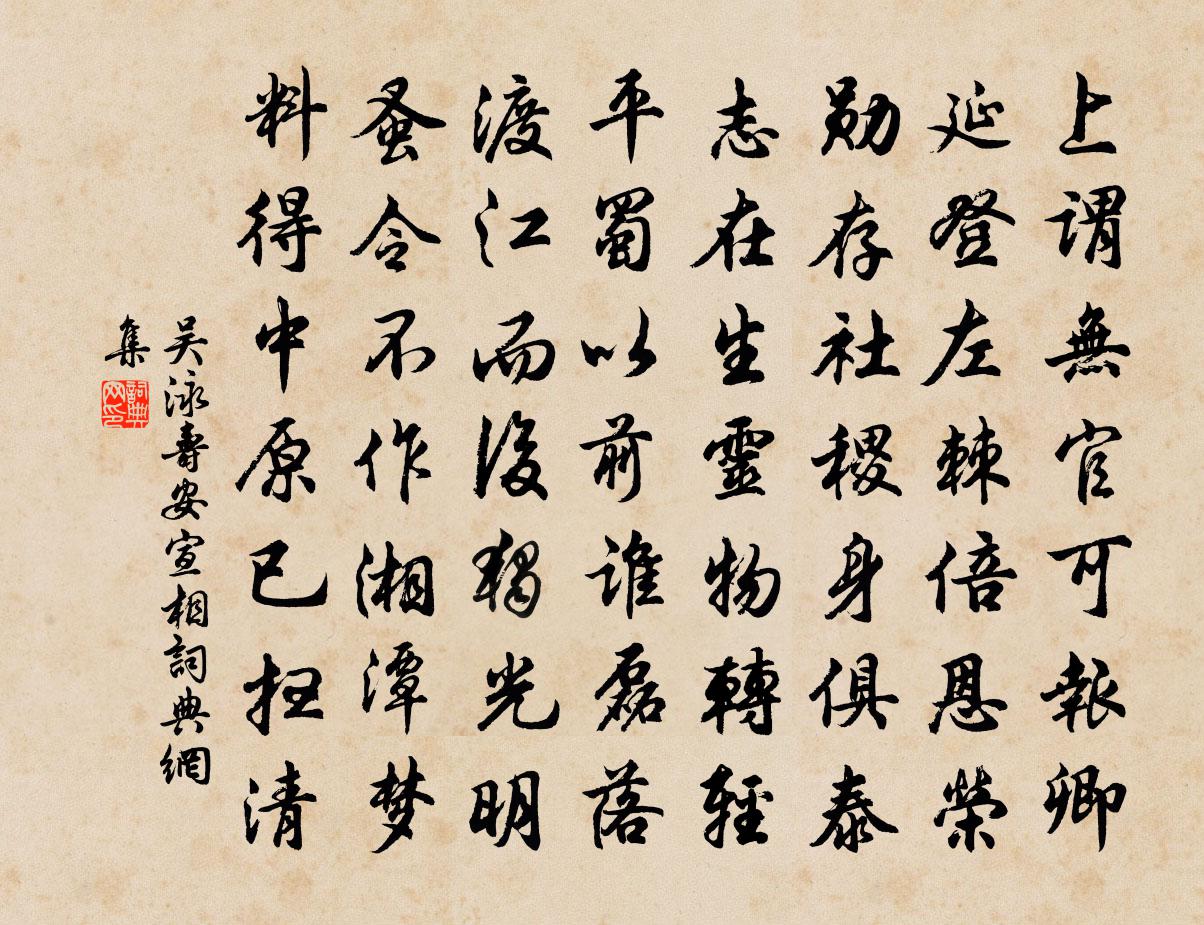 上謂無官可報卿
延登左棘倍恩榮
勛存社稷身俱泰
志在生靈物轉輕
平蜀以前誰磊落
渡江而後獨光明
蚤令不作湘潭梦
料得中原已抂清
吴泳壽安宣相詞典網
集
詞典网印